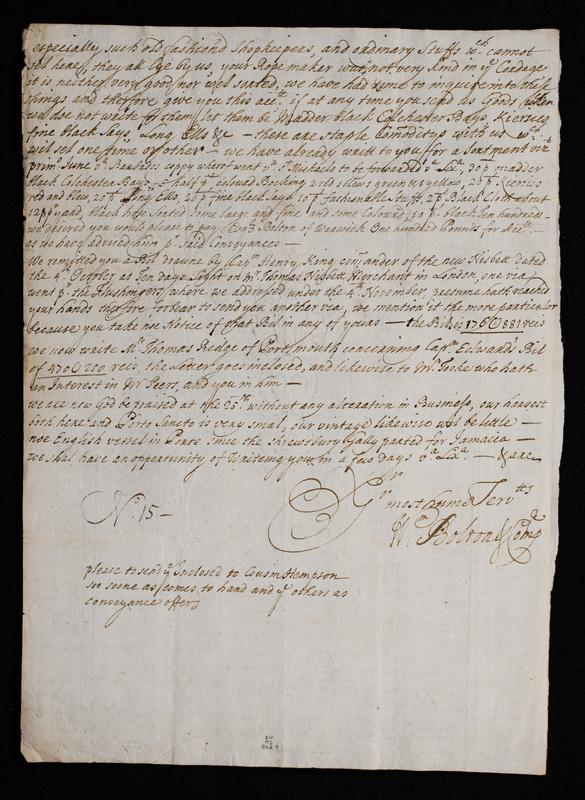 especially such old fashiond Shopkeepers, and ordinary Stuffs wch cannot
sel here, they all lye by us your Rope maker was not very kind in ye Cordage
it is neither very good nor wel sorted, we have had tyme to inquire into these
things and therfore give you this acc: if at any time you send us Goods when
we doe not write for them let them be Madder black Colchester Bays, Kierseys
fine Black Says Long Ells &c — these are staple Comoditys with us wch
wil sel one tyme or other — we have already writt to you for a Sortment viz
primo June Barbados coppy wherof went St Michaels to be forwarded 30 p madder
black Colchester Bays half colourd Bocking 2 red green & 1 yellow, 20 p Kierseys
red and blew, 20 p Long Ells, 20 p fine black Says 10 p fashionable Stuff, 2 p Black Cloth about
12 p yard, black hose Sorted Some large and fine and some Colourd, 10 p black Ten hundreds —
we desired you would please to pay Bolton of Warwick One hundred pounds for
as we have advised him p. Said Conveyances —
We remitted you a Bil drawne by Capn Henry King comander of the new Nisbett dated
the 4th October at Ten days Sight on Mr Thomas Nisbett Merchant in London, one via
went p. the Flushingers, where we addresed under the 4th November, presume hath reached
your hands therfore forbear to send you another via, we mention it the more particular
because you take noe Notice of that Bil in any of yours — the Bil is 176 881 reis
we now write Mr Thomas Ridge of Portsmouth concerning Capn Edwards Bil
of 470 210 reis, the letter goes inclosed, and likewise to Mr Tooke who hath
an Interest in Mr Peers, and you in him —
we are now God be praised at the 25th without any alteration in Busines, our harvest
both here and Porto Santo is very small, our vintage likewise wil be little —
noe English vessel in Porte Since the Shrewsbury Gally parted for Jamaica —
we shal have an oppertunity of Waiteing you in a few days — & are
Sr
Yr most humb Servtts
No. 15 —
Wm Bolton & Compa
please to send ye Inclosed to Cousin Hempson
soe soone as comes to hand and ye others as
conveyance offers